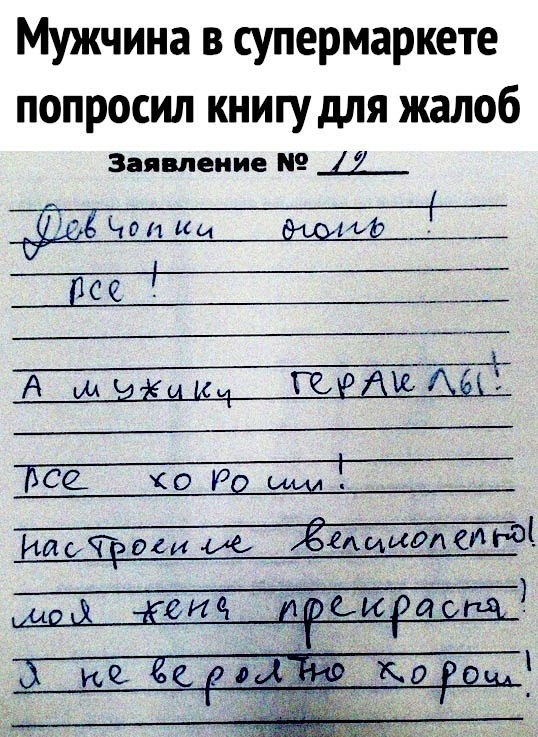 Мужчина в супермаркете
попросил книгу для жалоб
Заявление № 19
Девчонки огонь!
Все!
А мужики ГЕРАКЛЫ!
Все хороши!
Настроение великолепно!
моя жена прекрасна!
Я невероятно хорош!